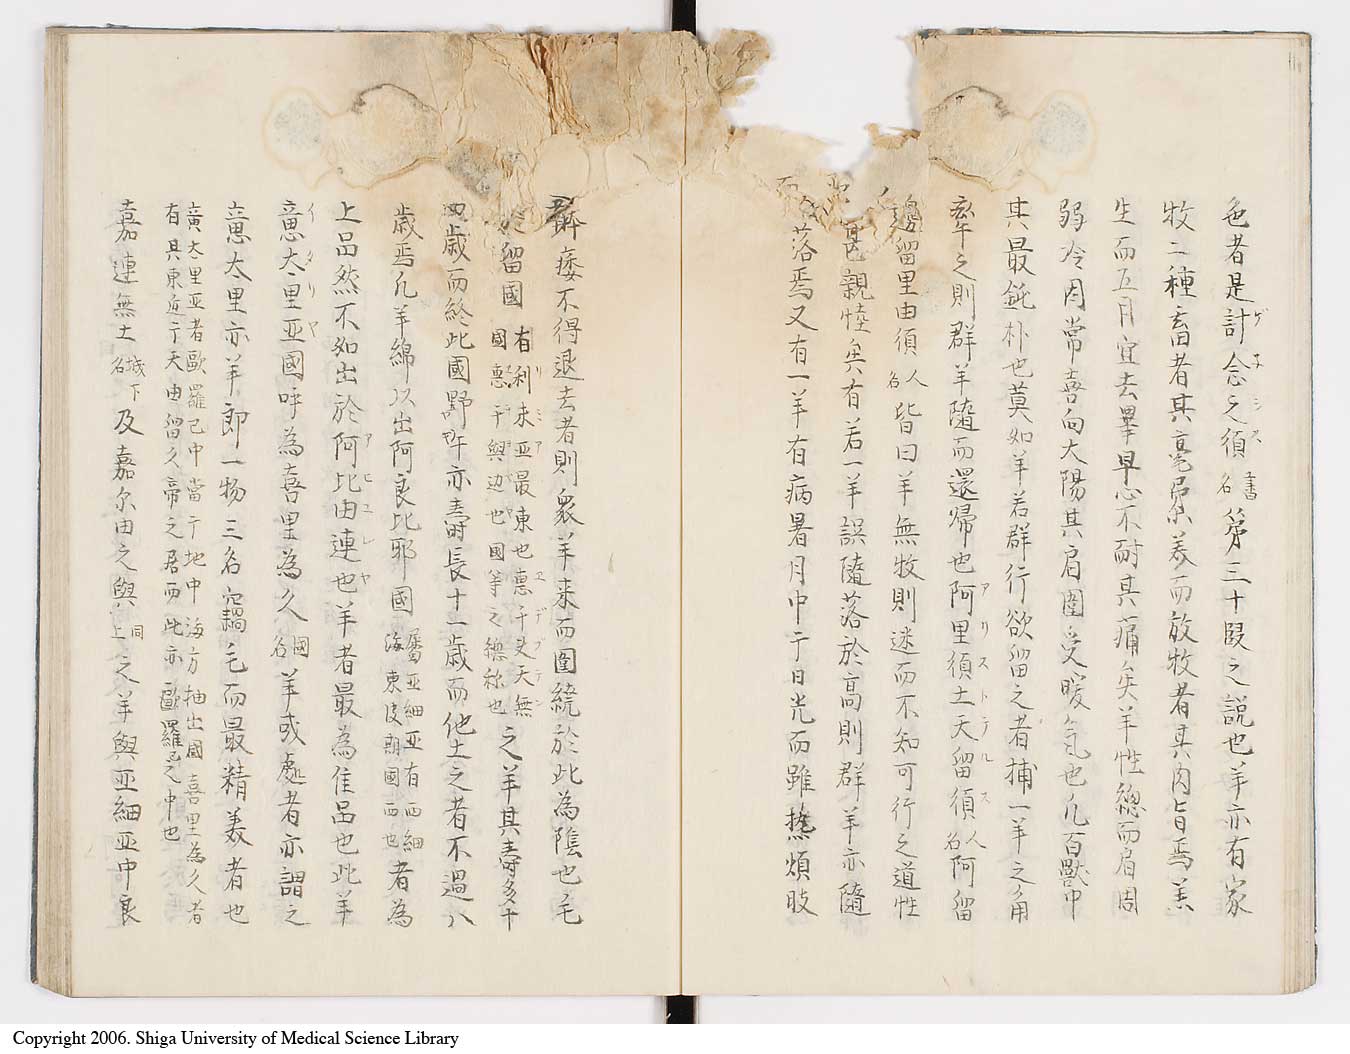 色者是計念之須書名第三十段之説也羊亦有家
ゲネシス
牧二種畜者其毫柔美而放牧者其肉旨焉羊
生而五月宜去畢早心不耐其痛矣羊性總而眉周
弱冷因常喜向大陽其眉圍受暖氣也凡百獸中
其最鈍朴也莫如羊若群行欲留之者捕一羊之角
牽之則群羊隨而還歸也阿里須土天留須人名阿留
アリストテルス
邊留里由須人名皆曰羊無牧則迷而不知可行之道性
甚親睦矣有若一羊誤隨落於高則群羊亦隨
落焉又有一羊有病暑月中于日光而雖熱煩肢
解痿不得退去者則衆羊来而圍繞於此為陰也毛
留國有利未亞最東也惠于天無國惠于與辺也國等之總称也之羊其壽多十
リミア
エデブテン
四歳而終此國野牛亦壽長十一歳而他土之者不過八
歳焉凡羊綿以出阿良比耶國屬亞細亞有西細海東皮朝國西也者為
上品然不如出於阿比由連也羊者最為佳品也此羊
アヒユレヤ
意太里亚國呼為喜里為久國名羊或處者亦謂之
イタリヤ
意太里亦羊郎一物三名露毛而最精美者也
意太里亚者歐羅巴中當于地中海方抽出國喜里為久者
有其東近于天由留久帝之居而此亦歐羅巴之中也
嘉連無土城下名及嘉尔由之與同上之羊與亚細亚中良